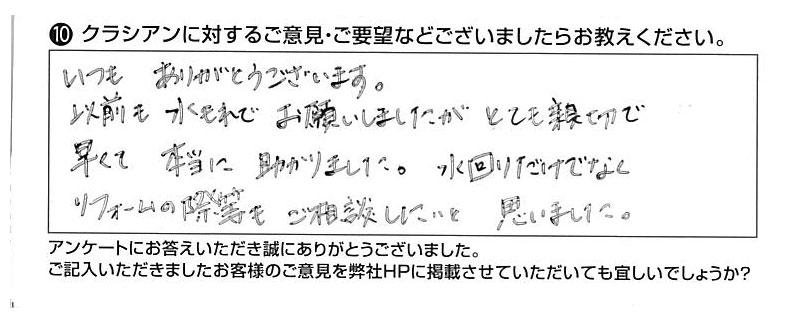 ⑩ クラシアンに対するご意見・ご要望などございましたらお教えください。
いつも ありがとうございます。
以前も 水もれで お願いしましたが とても親切で
早くて 本当に 助かりました。 水回りだけでなく
リフォームの際等も ご相談したいと 思いました。
アンケートにお答えいただき誠にありがとうございました。
ご記入いただきましたお客様のご意見を弊社HPに掲載させていただいても宜しいでしょうか?